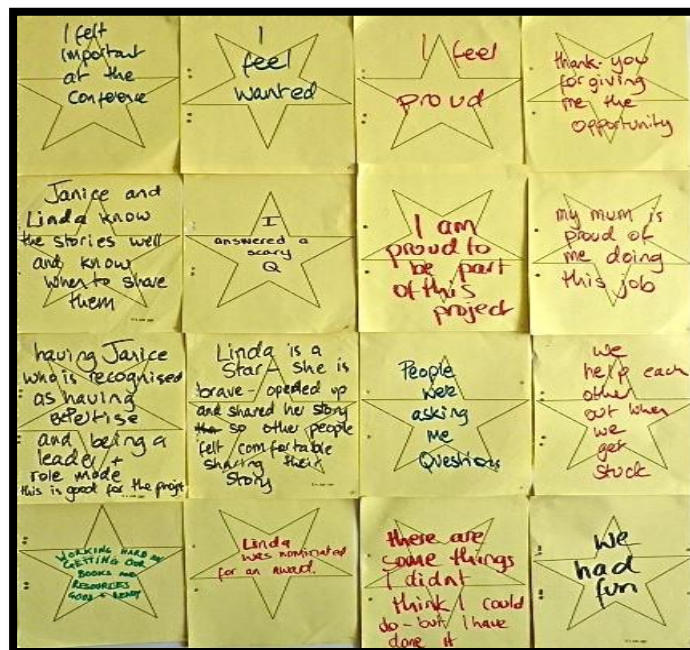 I felt
important
at the
Conference
I
feel
wanted
I feel
proud
thank-you
for giving
me the
opportunity
Janice and
Linda know
the stories well
and know
when to share
them
I
answered a
scary
Q
I am
proud to
be part
of this
project
my mum is
proud of
me doing
this job
having Janice
who is recognised
as having
expertise
and being a
leader +
role mode
this is good for the projt
Linda is a
Star - she is
brave - opened up
and shared her story
so other people
felt comfortable
sharing their
story
People
were
asking
me
Questions
we
help each
other
out when
we
get
stuck
WORKING HARD ON
GETTING OUR
BOOKS AND
RESOURCES
GOOD + READY
Linda
was nominated
for an award.
there are
some things
I didnt
think I could
do - but I have
done it
we
had
fun